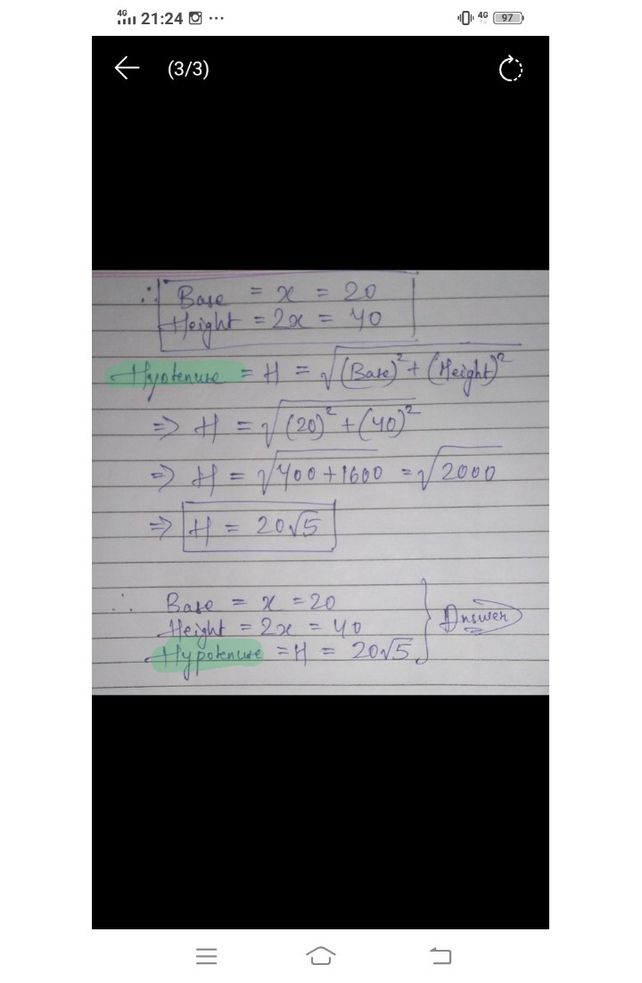 4G 21:24 ...
4G 97
(3/3)
∴ Base = x = 20
Height = 2x = 40
Hypotenuse = H = √(Base)² + (Height)²
⇒ H = √(20)² + (40)²
⇒ H = √400 + 1600 = √2000
⇒ H = 20√5
∴ Base = x = 20
Height = 2x = 40
Hypotenuse = H = 20√5
Answer